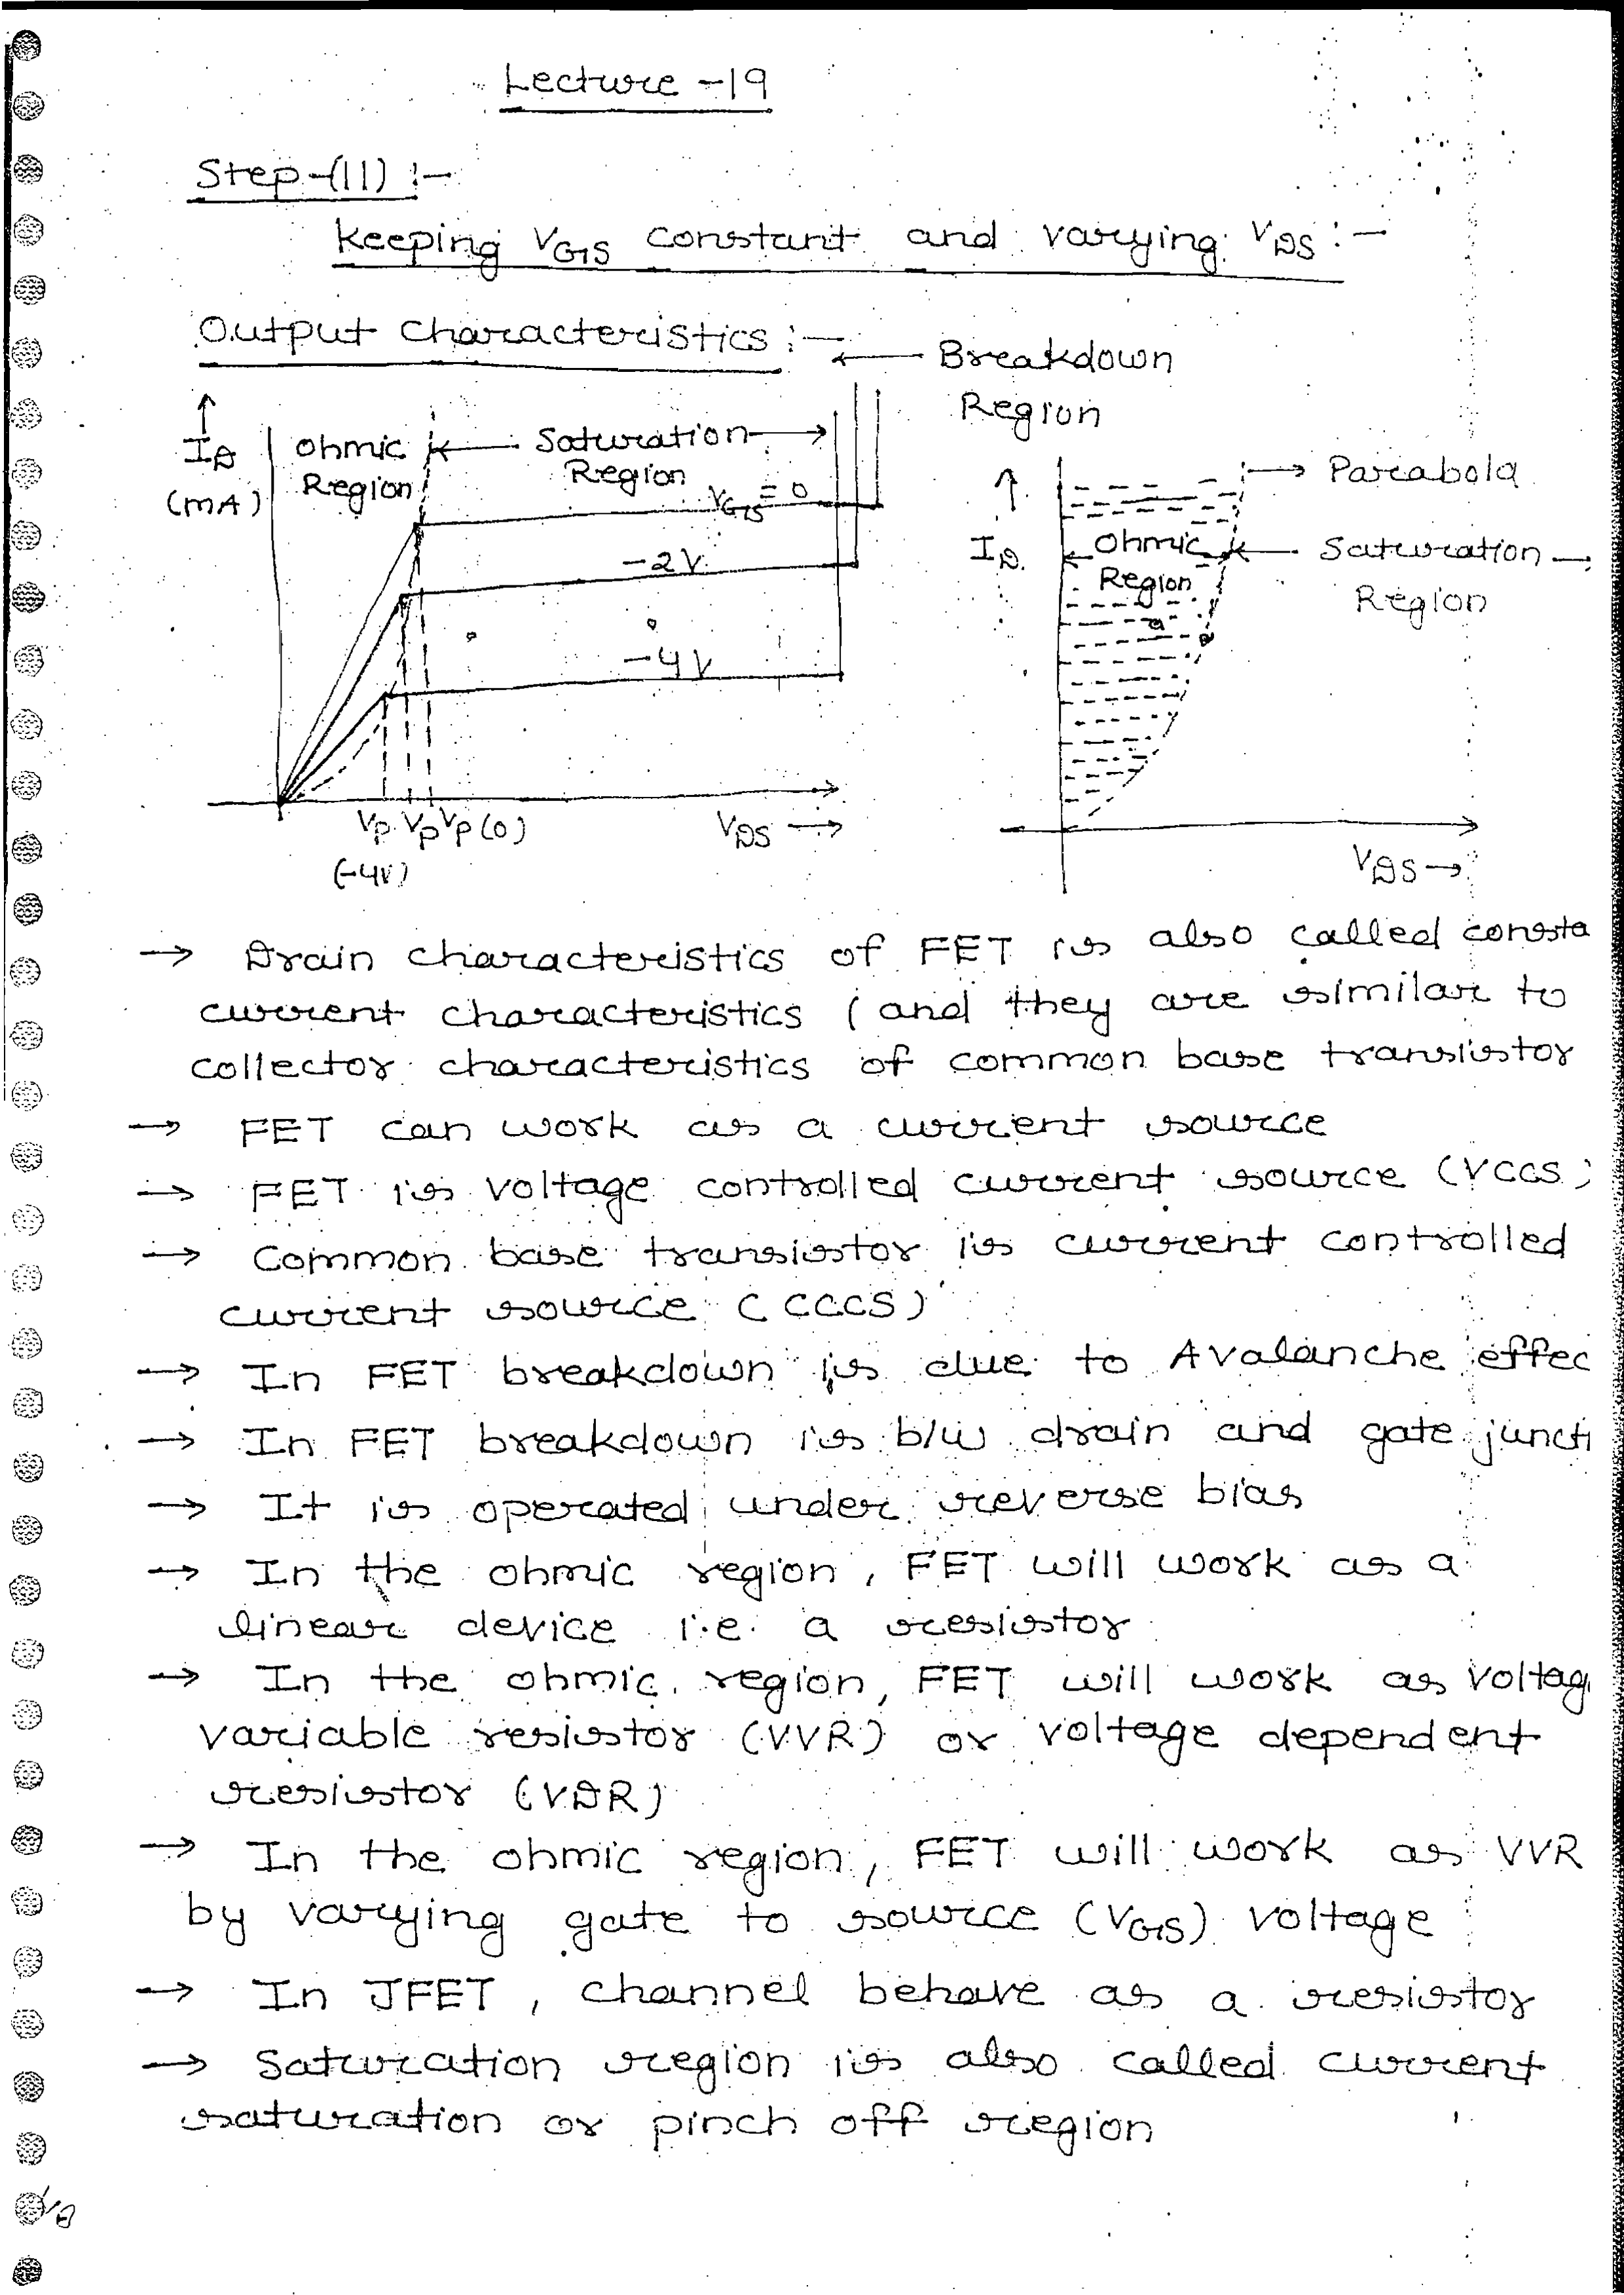 Lecture -19
Step-(II) :-
Keeping VGS constant and varying VDS :-
Output characteristics :-
← Breakdown
Region
↑
ID
(mA)
Ohmic
Region
← Saturation →
Region
VGS = 0
-2V
-4V
VP VP VP(0)
(-4V)
VDS →
↑
ID
→ Parabola
Ohmic
Region
← Saturation →
Region
VDS →
→ Drain characteristics of FET is also called consta
current characteristics (and they are similar to
collector characteristics of common base transistor
→ FET can work as a current source
→ FET is voltage controlled current source (VCCS)
→ Common base transistor is current controlled
current source (CCCS)
→ In FET breakdown is due to Avalanche effec
→ In FET breakdown is b/w drain and gate juncti
→ It is operated under reverse bias
→ In the ohmic region, FET will work as a
linear device i.e. a resistor
→ In the ohmic region, FET will work as voltag
variable resistor (VVR) or voltage dependent
resistor (VDR)
→ In the ohmic region, FET will work as VVR
by varying gate to source (VGS) voltage
→ In JFET, channel behave as a resistor
→ Saturation region is also called current
saturation or pinch off region